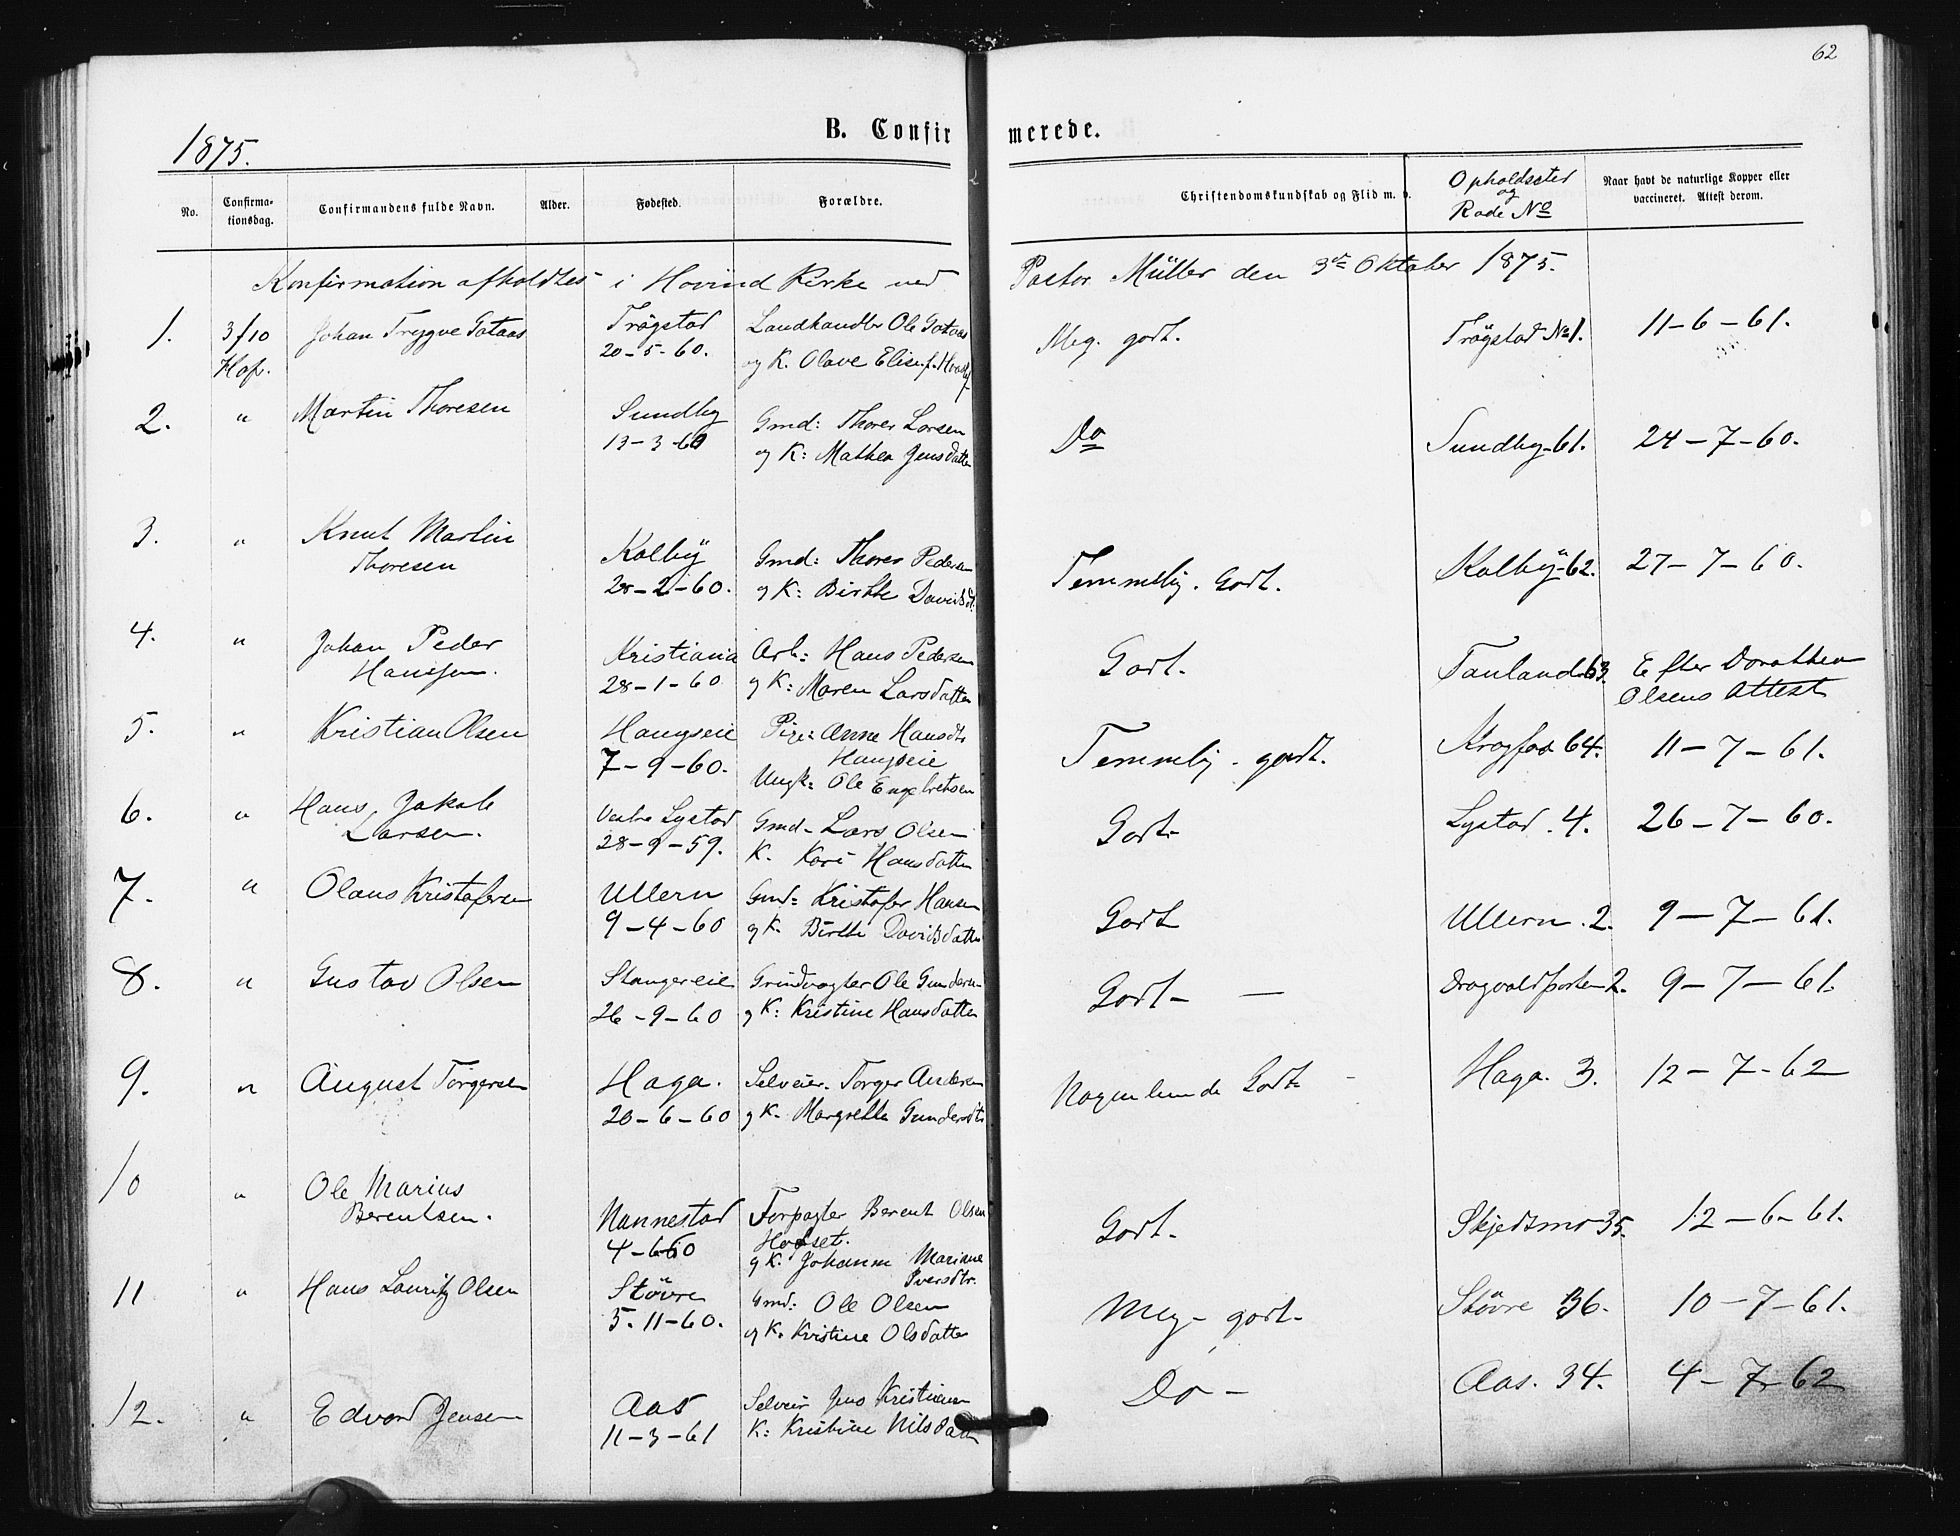 62
1875.
B. Confirmerede.
No.
Confirma-
tionsdag.
Confirmandens fulde Navn.
Alder.
Fødested.
Forældre.
Christendomskundskab og Flid m. v.
Opholdssted
og
Rode No
Naar havt de naturlige Kopper eller
vaccineret. Attest derom.
Konfirmation afholdtes i Hovind Kirke ved Pastor Müller den 3die Oktober 1875.
1. 3/10 Johan Trygve Gotaas Trögstad Landhandler Ole Gotaas Meg. godt. Trögstad No 1. 11-6-61.
20-5-60. og K. Olave Elise f.
2. " Martin Thoresen Sundby Gmd: Thorer Larsen Do Sundby-61. 24-7-60.
13-3-60 og K: Mathea Jensdatter
3. " Knut Martin Kolbÿ Gmd: Thorer Pedersen Temmelig. Godt. Kolbÿ-62. 27-7-60.
Thoresen 28-2-60. og K: Birthe Davidsdt.
4. " Johan Peder Kristiania Arb: Hans Pedersen Godt. Tanland 63. Efter Dorothea
Hanssen. 28-1-60 og K: Maren Larsdatter Olsens Attest
5. " Kristian Olsen Haugseie Pige: Anne Hansdtr Temmelig. godt. Krogfos 64. 11-7-61.
7-9-60. Haugseie
Ungk: Ole Engebretsen
6. " Hans Jakob Vestre Lystad Gmd- Lars Olsen Godt- Lystad. 4. 26-7-60.
Larsen. 28-9-59. K. Kari Hansdatter
7. " Olaus Kristofersen Ullern Gmd: Kristofer Hansen Godt Ullern. 2. 9-7-61.
9-4-60 og K. Birthe Davidsdatter
8. " Gustav Olsen Stangereie Grindvogter Ole Gundersen Godt- - Dragvoldporten 2. 9-7-61.
26-9-60 og K: Kristine Hansdatter
9. " August Torgersen Haga. Selveier. Torger Andersen Nogenlunde Godt - Haga. 3. 12-7-62
20-6-60 og K. Margrethe Gundersdtr
10 " Ole Marius Nannestad Forpagter Berent Olsen Godt. Skjedsmo 35. 12-6-61.
Berentsen. 4-6-60 Holset.
og K. Johanne Mariane
Iversdtr.
11 " Hans Lauritz Olsen Stövre Gmd: Ole Olsen Meg- godt- Stövre 36. 10-7-61.
5-11-60. og K. Kristine Olsdatter
12. " Edvard Jensen Aas Selveier Jens Kristiansen Do - Aas. 34. 4-7-62
11-3-61 K: Kristine Nilsdatter